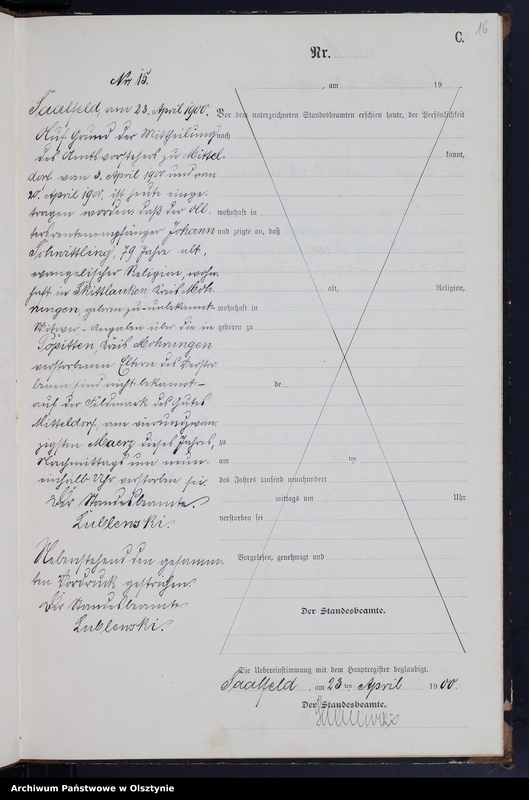 16
C.
Nr.
Nr. 15.
, am 19
Saalfeld, am 23. April 1900.
Vor dem unterzeichneten Standesbeamten erschien heute, der Persönlichkeit
Auf Grund der Mittheilung
nach
des Amtsvorstehers zu Mittel-
kannt,
dorf vom 3. April 1900 und vom
20. April 1900, ist heute einge-
tragen worden, daß der
wohnhaft in
Johann
und zeigte an, daß
Schmittling, 79 Jahre alt,
evangelischer Religion, wohn-
haft in Skittlauken Kreis Moh-
alt, Religion,
rungen, geboren zu -unbekannt-
wohnhaft in
Wittwer - Angaben über die in
geboren zu
Topitten, Kreis Mohrungen
verstorbenen Eltern des Verstor-
benen sind nicht bekannt -
de
auf der Feldmark des Gutes
Mitteldorf, am vierundzwan-
zigsten Maerz dieses Jahres,
zu
Nachmittags um neun-
am ten
einhalb Uhr verstorben sei.
des Jahres tausend neunhundert
Der Standesbeamte.
mittags um Uhr
Lublenski.
verstorben sei
Nebenstehend den gesamm-
Vorgelesen, genehmigt und
ten Vordruck gestrichen.
Der Standesbeamte.
Der Standesbeamte.
Lublenski.
Die Uebereinstimmung mit dem Hauptregister beglaubigt.
Saalfeld, am 23 ten April 1900.
Der Standesbeamte.
Archiwum Państwowe w Olsztynie